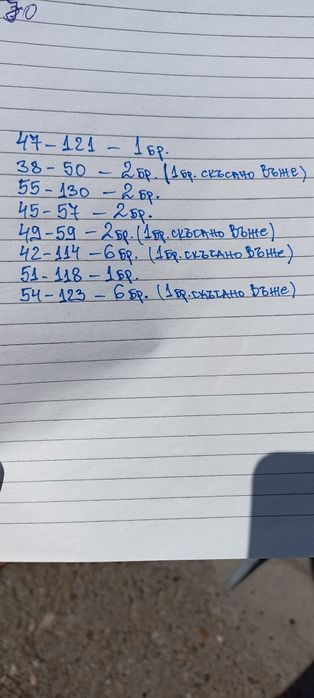 47-121 - 1бр.
38-50 - 2бр. (1бр. скъсано въже)
55-130 - 2бр.
45-57 - 2бр.
49-59 - 2бр. (1бр. скъсано въже)
42-114 - 6бр. (1бр. скъсано въже)
51-118 - 1бр.
54-123 - 6бр. (1бр. скъсано въже)